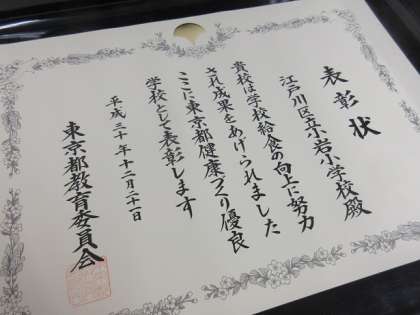 表彰状
江戸川区立小岩小学校殿
貴校は学校給食の向上に努力
され成果をあげられました
ここに東京都健康づくり優良
学校として表彰します
平成三十年十二月二十一日
東京都教育委員会